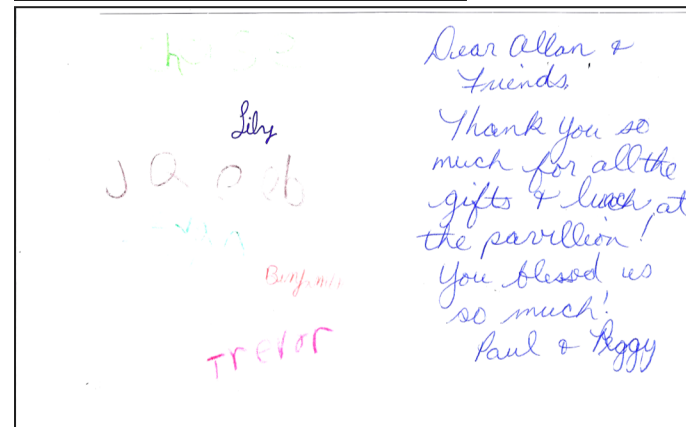 Lily
Jacob
Benjamin
Trevor
Dear Allan &
Friends,
Thank you so
much for all the
gifts & lunch at
the pavillion!
You blessed us
so much!
Paul & Peggy